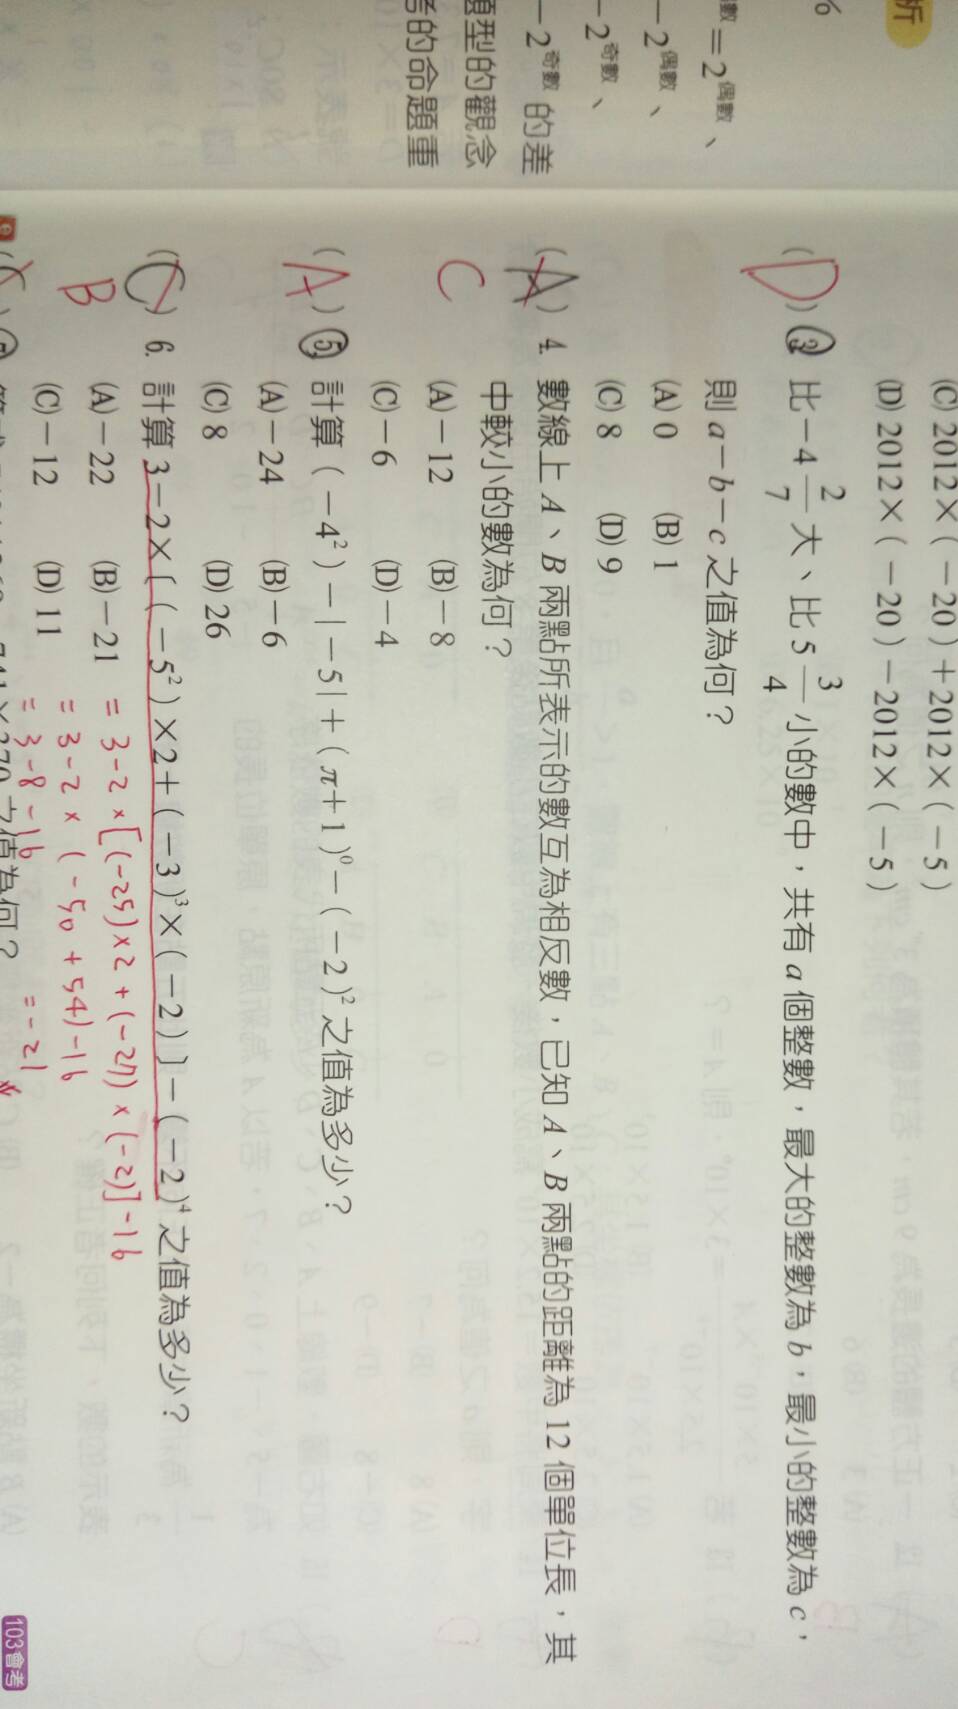 析
%
數＝2偶數、
－2偶數、
－2奇數、
－2奇數 的差
題型的觀念
考的命題重
(C) 2012×(－20)＋2012×(－5)
(D) 2012×(－20)－2012×(－5)
( D ) 3. 比－4 2/7 大、比 5 3/4 小的數中，共有 a 個整數，最大的整數為 b，最小的整數為 c，
則 a－b－c 之值為何？
(A) 0 (B) 1
(C) 8 (D) 9
( A ) 4. 數線上 A、B 兩點所表示的數互為相反數，已知 A、B 兩點的距離為 12 個單位長，其
C
中較小的數為何？
(A)－12 (B)－8
(C)－6 (D)－4
( A ) 5. 計算(－4²)－|－5|＋(π＋1)⁰－(－2)²之值為多少？
(A)－24 (B)－6
(C) 8 (D) 26
( C ) 6. 計算 3－2×〔(－5²)×2＋(－3)³×(－2)〕－(－2)⁴ 之值為多少？
B
(A)－22 (B)－21
(C)－12 (D) 11
= 3-2×[(-25)×2+(-27)×(-2)]-16
= 3-2×(-50+54)-16
= 3-8-16 =-21
之值為何？
103會考